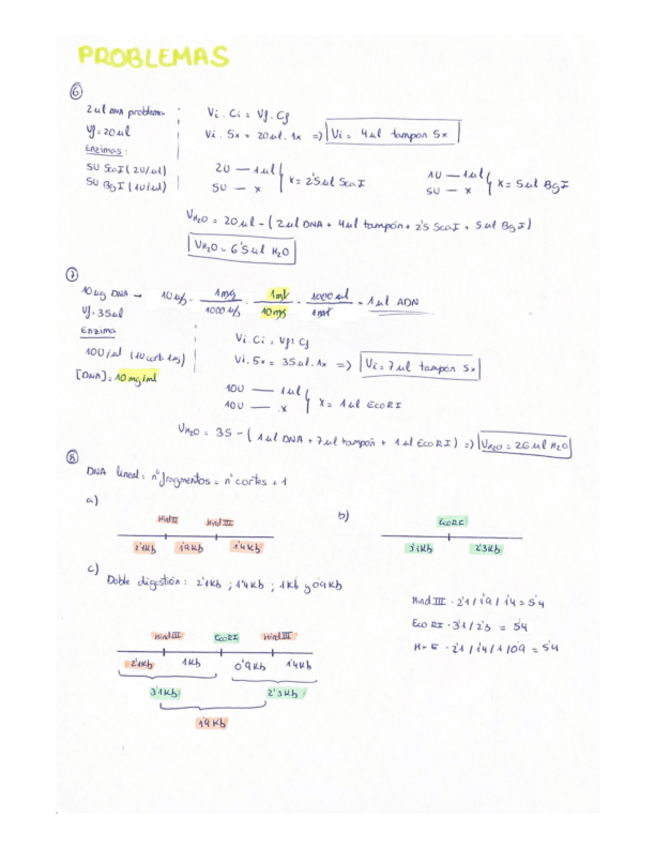 PROBLEMAS
6
2ul DNA problema
Vf = 20ul
Enzimas:
5U ScaI (2U/ul)
5U BgI (1U/ul)
Vi . Ci = Vf . Cf
Vi . 5x = 20ul . 1x => Vi = 4ul tampon 5x
2U — 1ul
5U — x
x = 2'5ul ScaI
1U — 1ul
5U — x
x = 5ul BgI
VH2O = 20ul - (2ul DNA + 4ul tampón + 2'5 ScaI + 5ul BgI)
VH2O = 6'5ul H2O
7
10ug DNA → 10ug · 1mg/1000ug · 1ml/10mg · 1000ul/1ml = 1ul ADN
Vf = 35ul
Enzima
10U/ul
[DNA] = 10mg/ml
Vi . Ci = Vf . Cf
Vi . 5x = 35ul . 1x => Vi = 7ul tampón 5x
10U — 1ul
10U — x
x = 1ul EcoRI
VH2O = 35 - (1ul DNA + 7ul tampón + 1ul EcoRI) => VH2O = 26ul H2O
8
DNA lineal = nº fragmentos = nº cortes + 1
a)
HindIII HindIII
2'1Kb 1'9Kb 1'4Kb
b)
EcoRI
3'1Kb 2'3Kb
c)
Doble digestión: 2'1Kb ; 1'4Kb ; 1Kb y 0'9Kb
HindIII EcoRI HindIII
2'1Kb 1Kb 0'9Kb 1'4Kb
3'1Kb 2'3Kb
1'9Kb
HindIII · 2'1 / 1'9 / 1'4 = 5'4
EcoRI · 3'1 / 2'3 = 5'4
H+E · 2'1 / 1'4 / 1 / 0'9 = 5'4